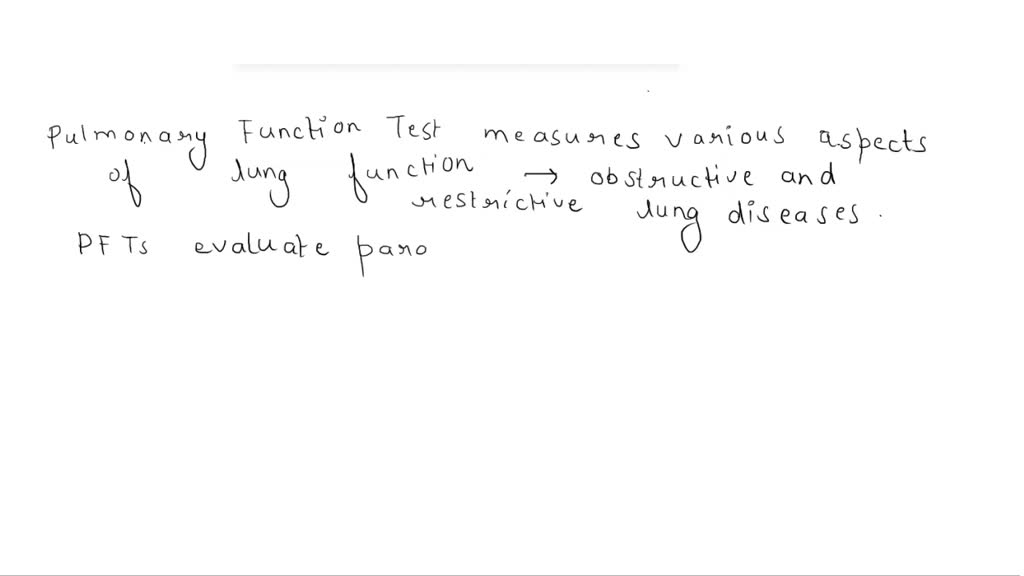 Pulmonary Function Test measures various aspects
of lung function → obstructive and
restrictive lung diseases.
PFTs evaluate paro